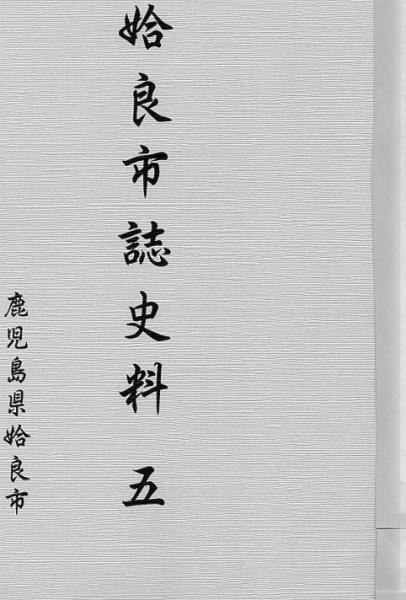 姶良市誌史料 五
鹿児島県姶良市